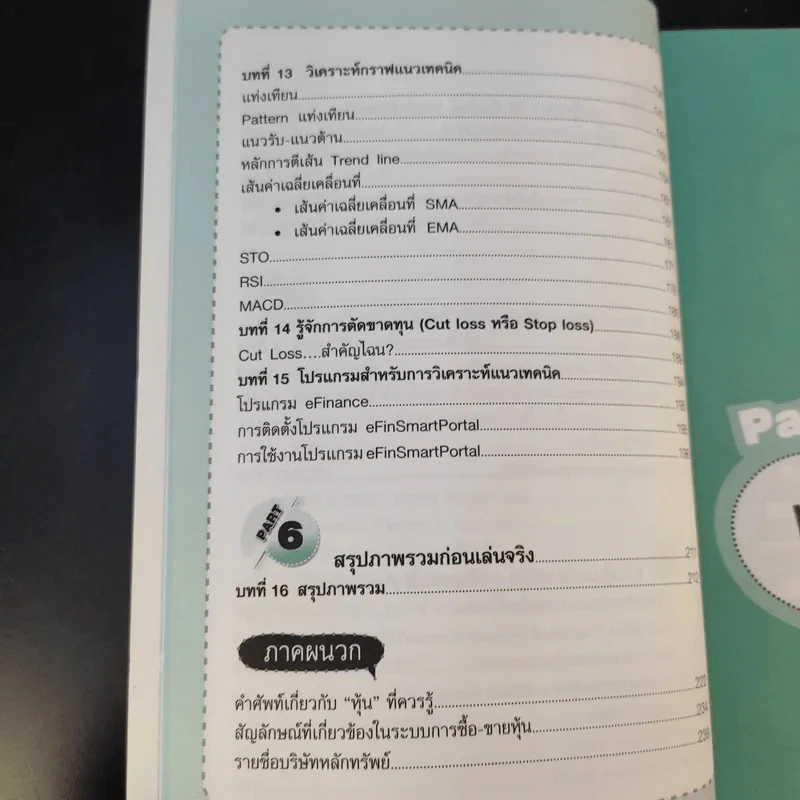 บทที่ 13 วิเคราะห์กราฟแนวเทคนิค
แท่งเทียน
Pattern แท่งเทียน
แนวรับ-แนวต้าน
หลักการตีเส้น Trend line
เส้นค่าเฉลี่ยเคลื่อนที่
• เส้นค่าเฉลี่ยเคลื่อนที่ SMA
• เส้นค่าเฉลี่ยเคลื่อนที่ EMA
STO
RSI
MACD
บทที่ 14 รู้จักการตัดขาดทุน (Cut loss หรือ Stop loss)
Cut Loss....สำคัญไฉน?
บทที่ 15 โปรแกรมสำหรับการวิเคราะห์แนวเทคนิค
โปรแกรม eFinance
การติดตั้งโปรแกรม eFinSmartPortal
การใช้งานโปรแกรม eFinSmartPortal
PART 6
สรุปภาพรวมก่อนเล่นจริง 211
บทที่ 16 สรุปภาพรวม 212
ภาคผนวก
คำศัพท์เกี่ยวกับ “หุ้น” ที่ควรรู้ 222
สัญลักษณ์ที่เกี่ยวข้องในระบบการซื้อ-ขายหุ้น 234
รายชื่อบริษัทหลักทรัพย์